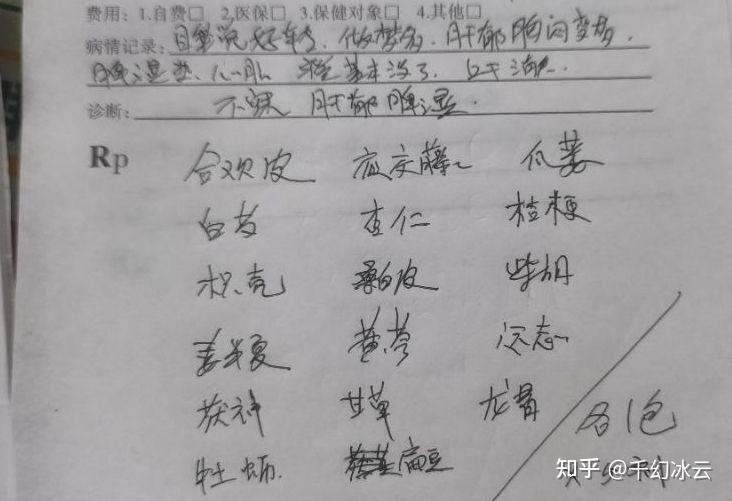 费用：1.自费□ 2.医保□ 3.保健对象□ 4.其他□
病情记录：自觉况好转、做梦多、肝郁胸闷变多、
脾湿
诊断：不寐 肝郁脾湿
Rp
合欢皮 夜交藤 瓜蒌
白芍 杏仁 桔梗
枳壳 桑白皮 柴胡
姜半夏 黄芩 远志
茯神 甘草 龙骨
牡蛎 扁豆
各1包
知乎 @千幻冰云